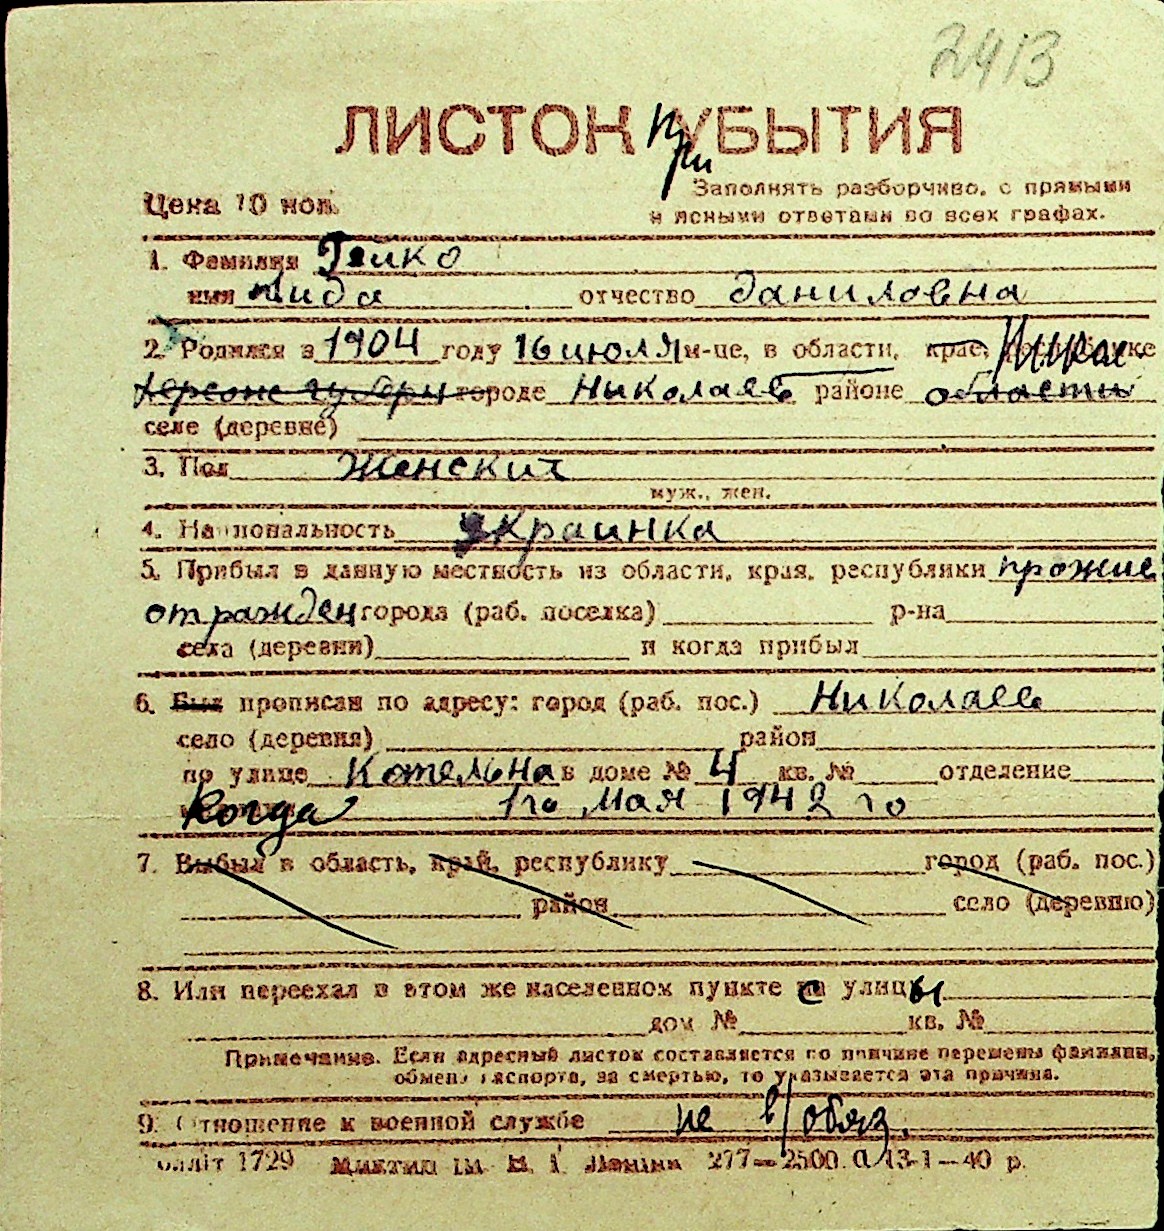 2413
ЛИСТОК при УБЫТИЯ
Цена 10 коп.
Заполнять разборчиво, с прямыми
и ясными ответами во всех графах.
1. Фамилия Гейко
имя Лида отчество Даниловна
2. Родился в 1904 году 16 июля м-це, в области, крае, республике Никол.
Херсонс губерн городе Николаев районе области
селе (деревне)
3. Пол Женский
муж., жен.
4. Национальность украинка
5. Прибыл в данную местность из области, края, республики прожив
от рожден города (раб. поселка) р-на
села (деревни) и когда прибыл
6. Был прописан по адресу: город (раб. пос.) Николаев
село (деревня) район
по улице Котельна в доме № 4 кв. № отделение
когда 1го мая 1942 го
7. Выбыл в область, край, республику город (раб. пос.)
район село (деревню)
8. Или переехал в этом же населенном пункте с улицы
дом № кв. №
Примечание. Если адресный листок составляется по причине перемены фамилии,
обмена паспорта, за смертью, то указывается эта причина.
9. Отношение к военной службе не в/обяз.
блліт 1729 277—2500 13-1—40 р.